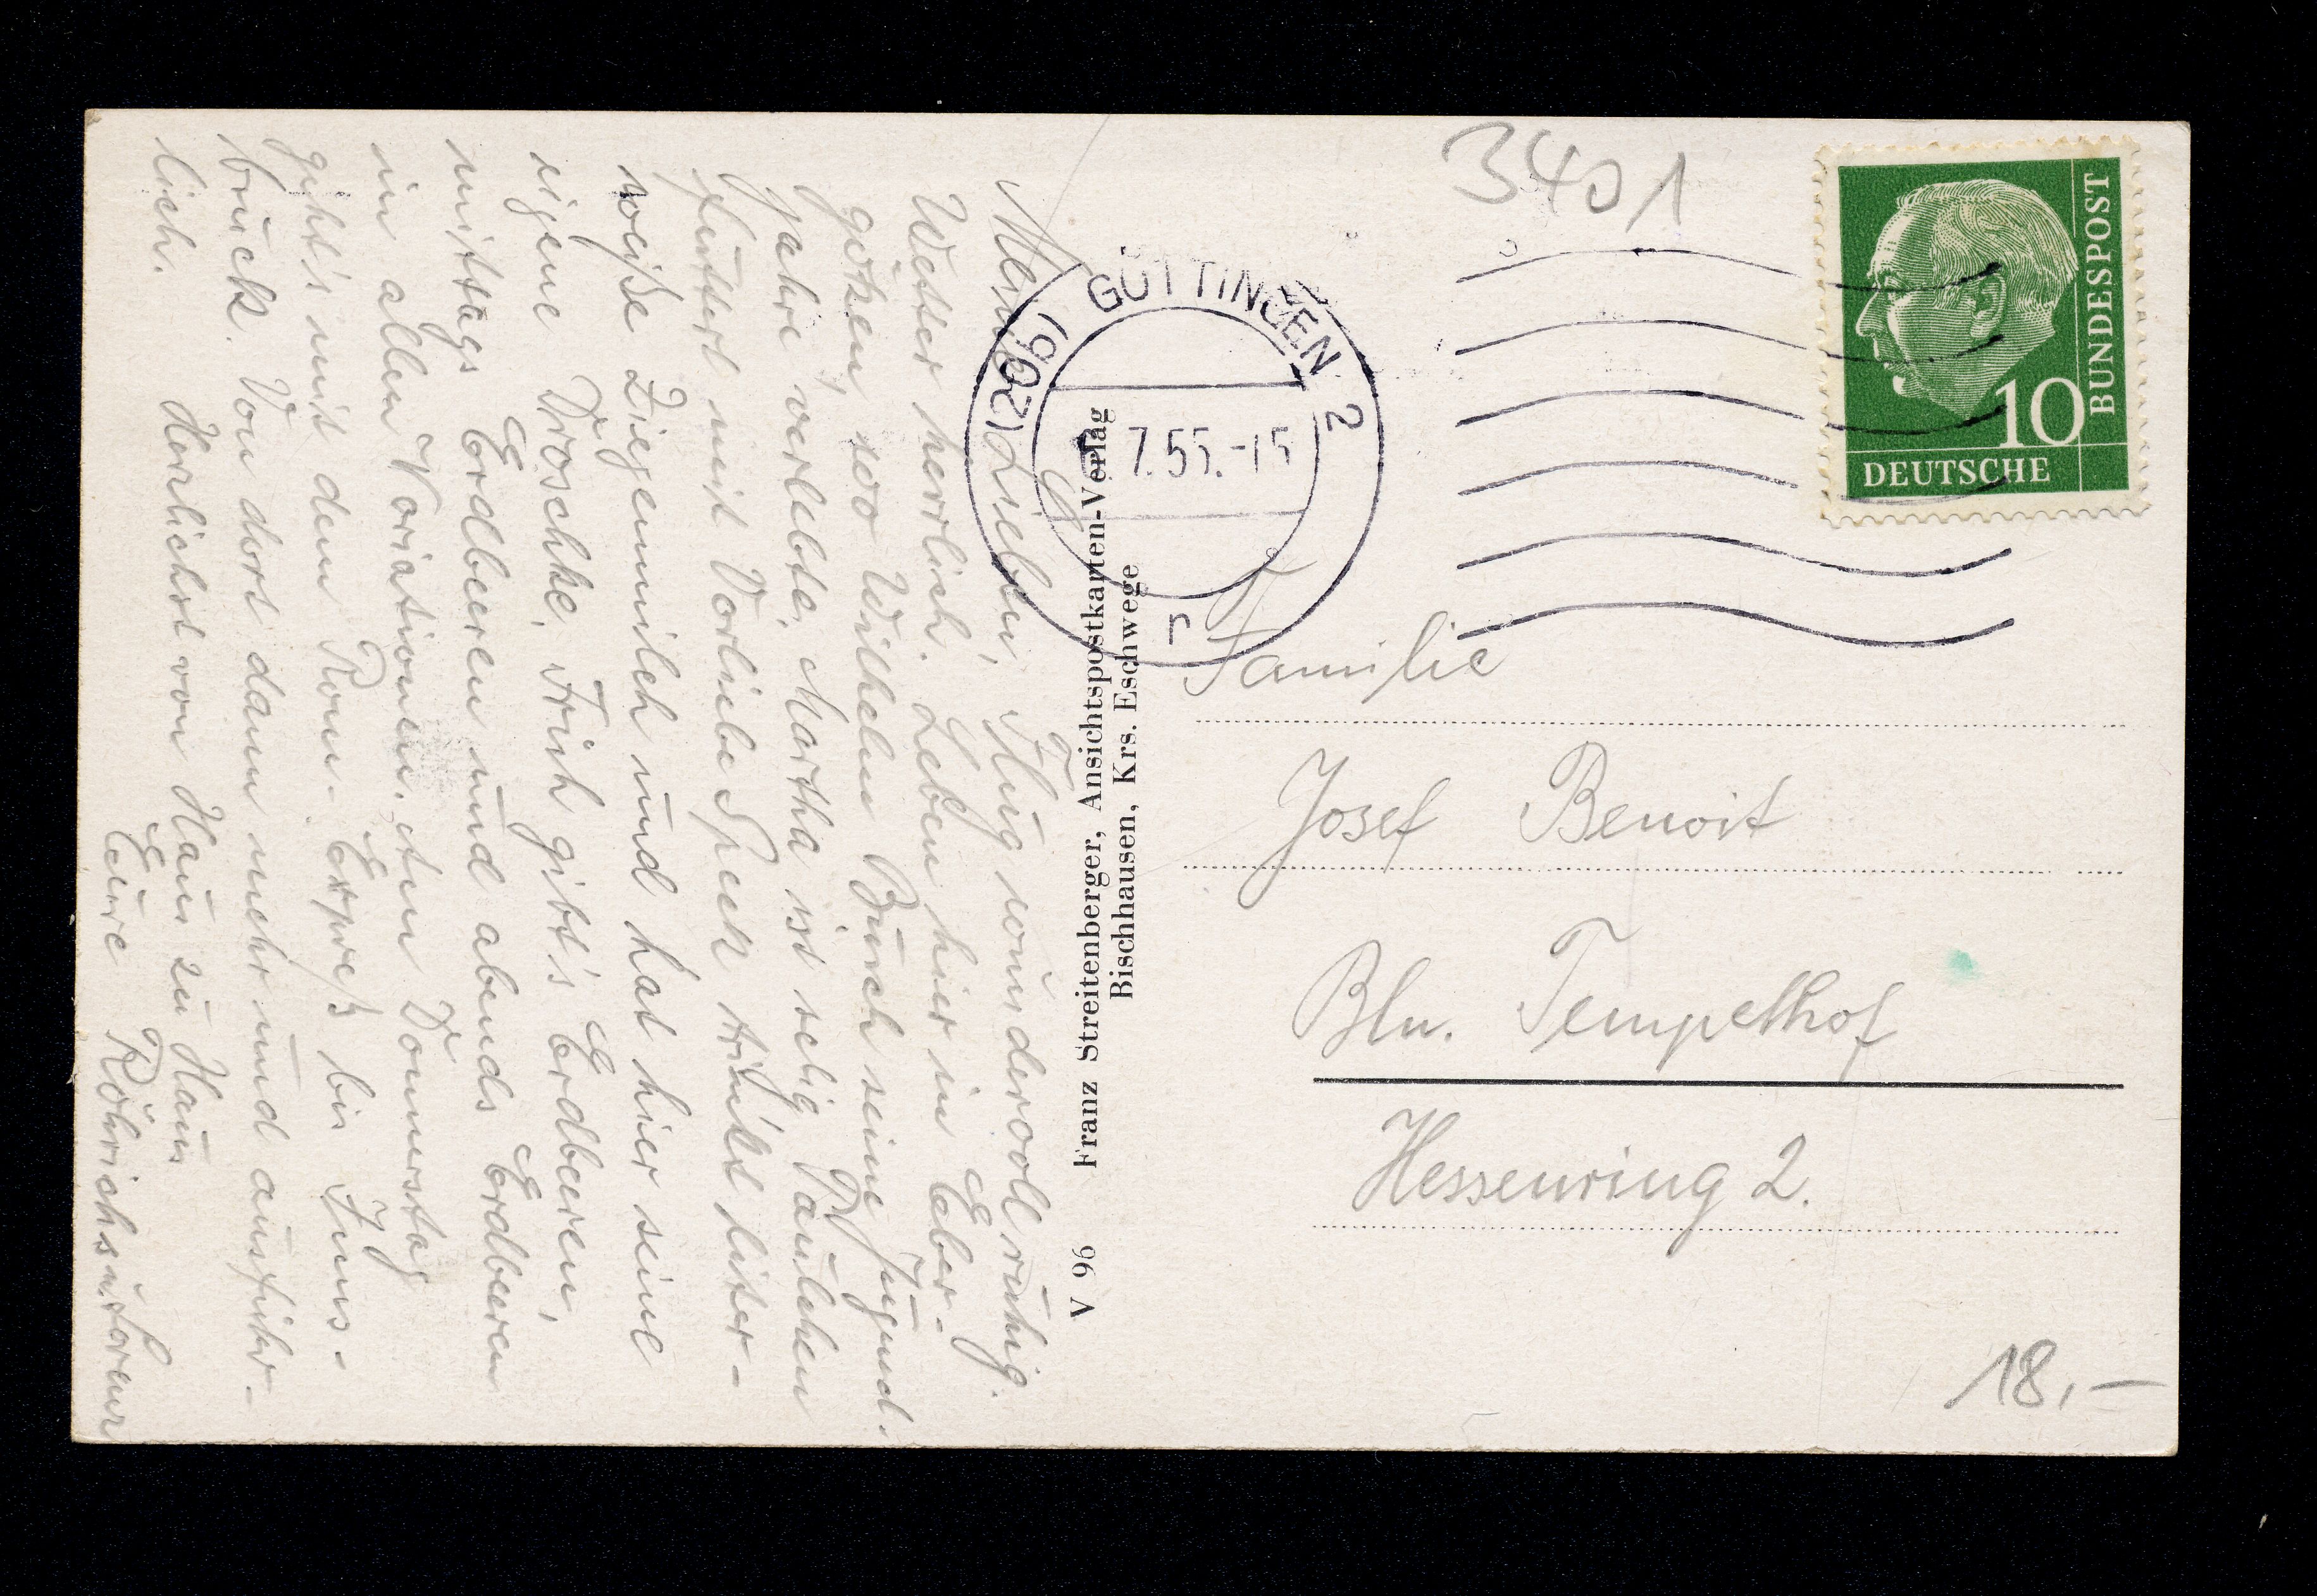 Meine Lieben, Flug wundervoll ruhig.
Wetter herrlich. Leben hier in Eber-
götzen, wo Wilhelm Busch seine Jugend-
jahre verlebte. Martha ist selig Paulchen
futtert mit Vorliebe Speck trinkt liter-
weise Ziegenmilch und hat hier seine
eigene Droschke. Früh gibt's Erdbeeren,
mittags Erdbeeren und abends Erdbeeren
in allen Variationen. Am Donnerstag
geht's mit dem Rom-Expreß bis Inns-
bruck. Von dort dann mehr und ausführ-
lich. Herzlichst von Haus zu Haus
Eure Röhrichs
V 96 Franz Streitenberger, Ansichtspostkarten-Verlag
Bischhausen, Krs. Eschwege
3401
(20b) GÖTTINGEN 2
7.55.-15
r
DEUTSCHE
BUNDESPOST
10
Familie
Josef Benoit
Bln. Tempelhof
Hessenring 2.
18,-